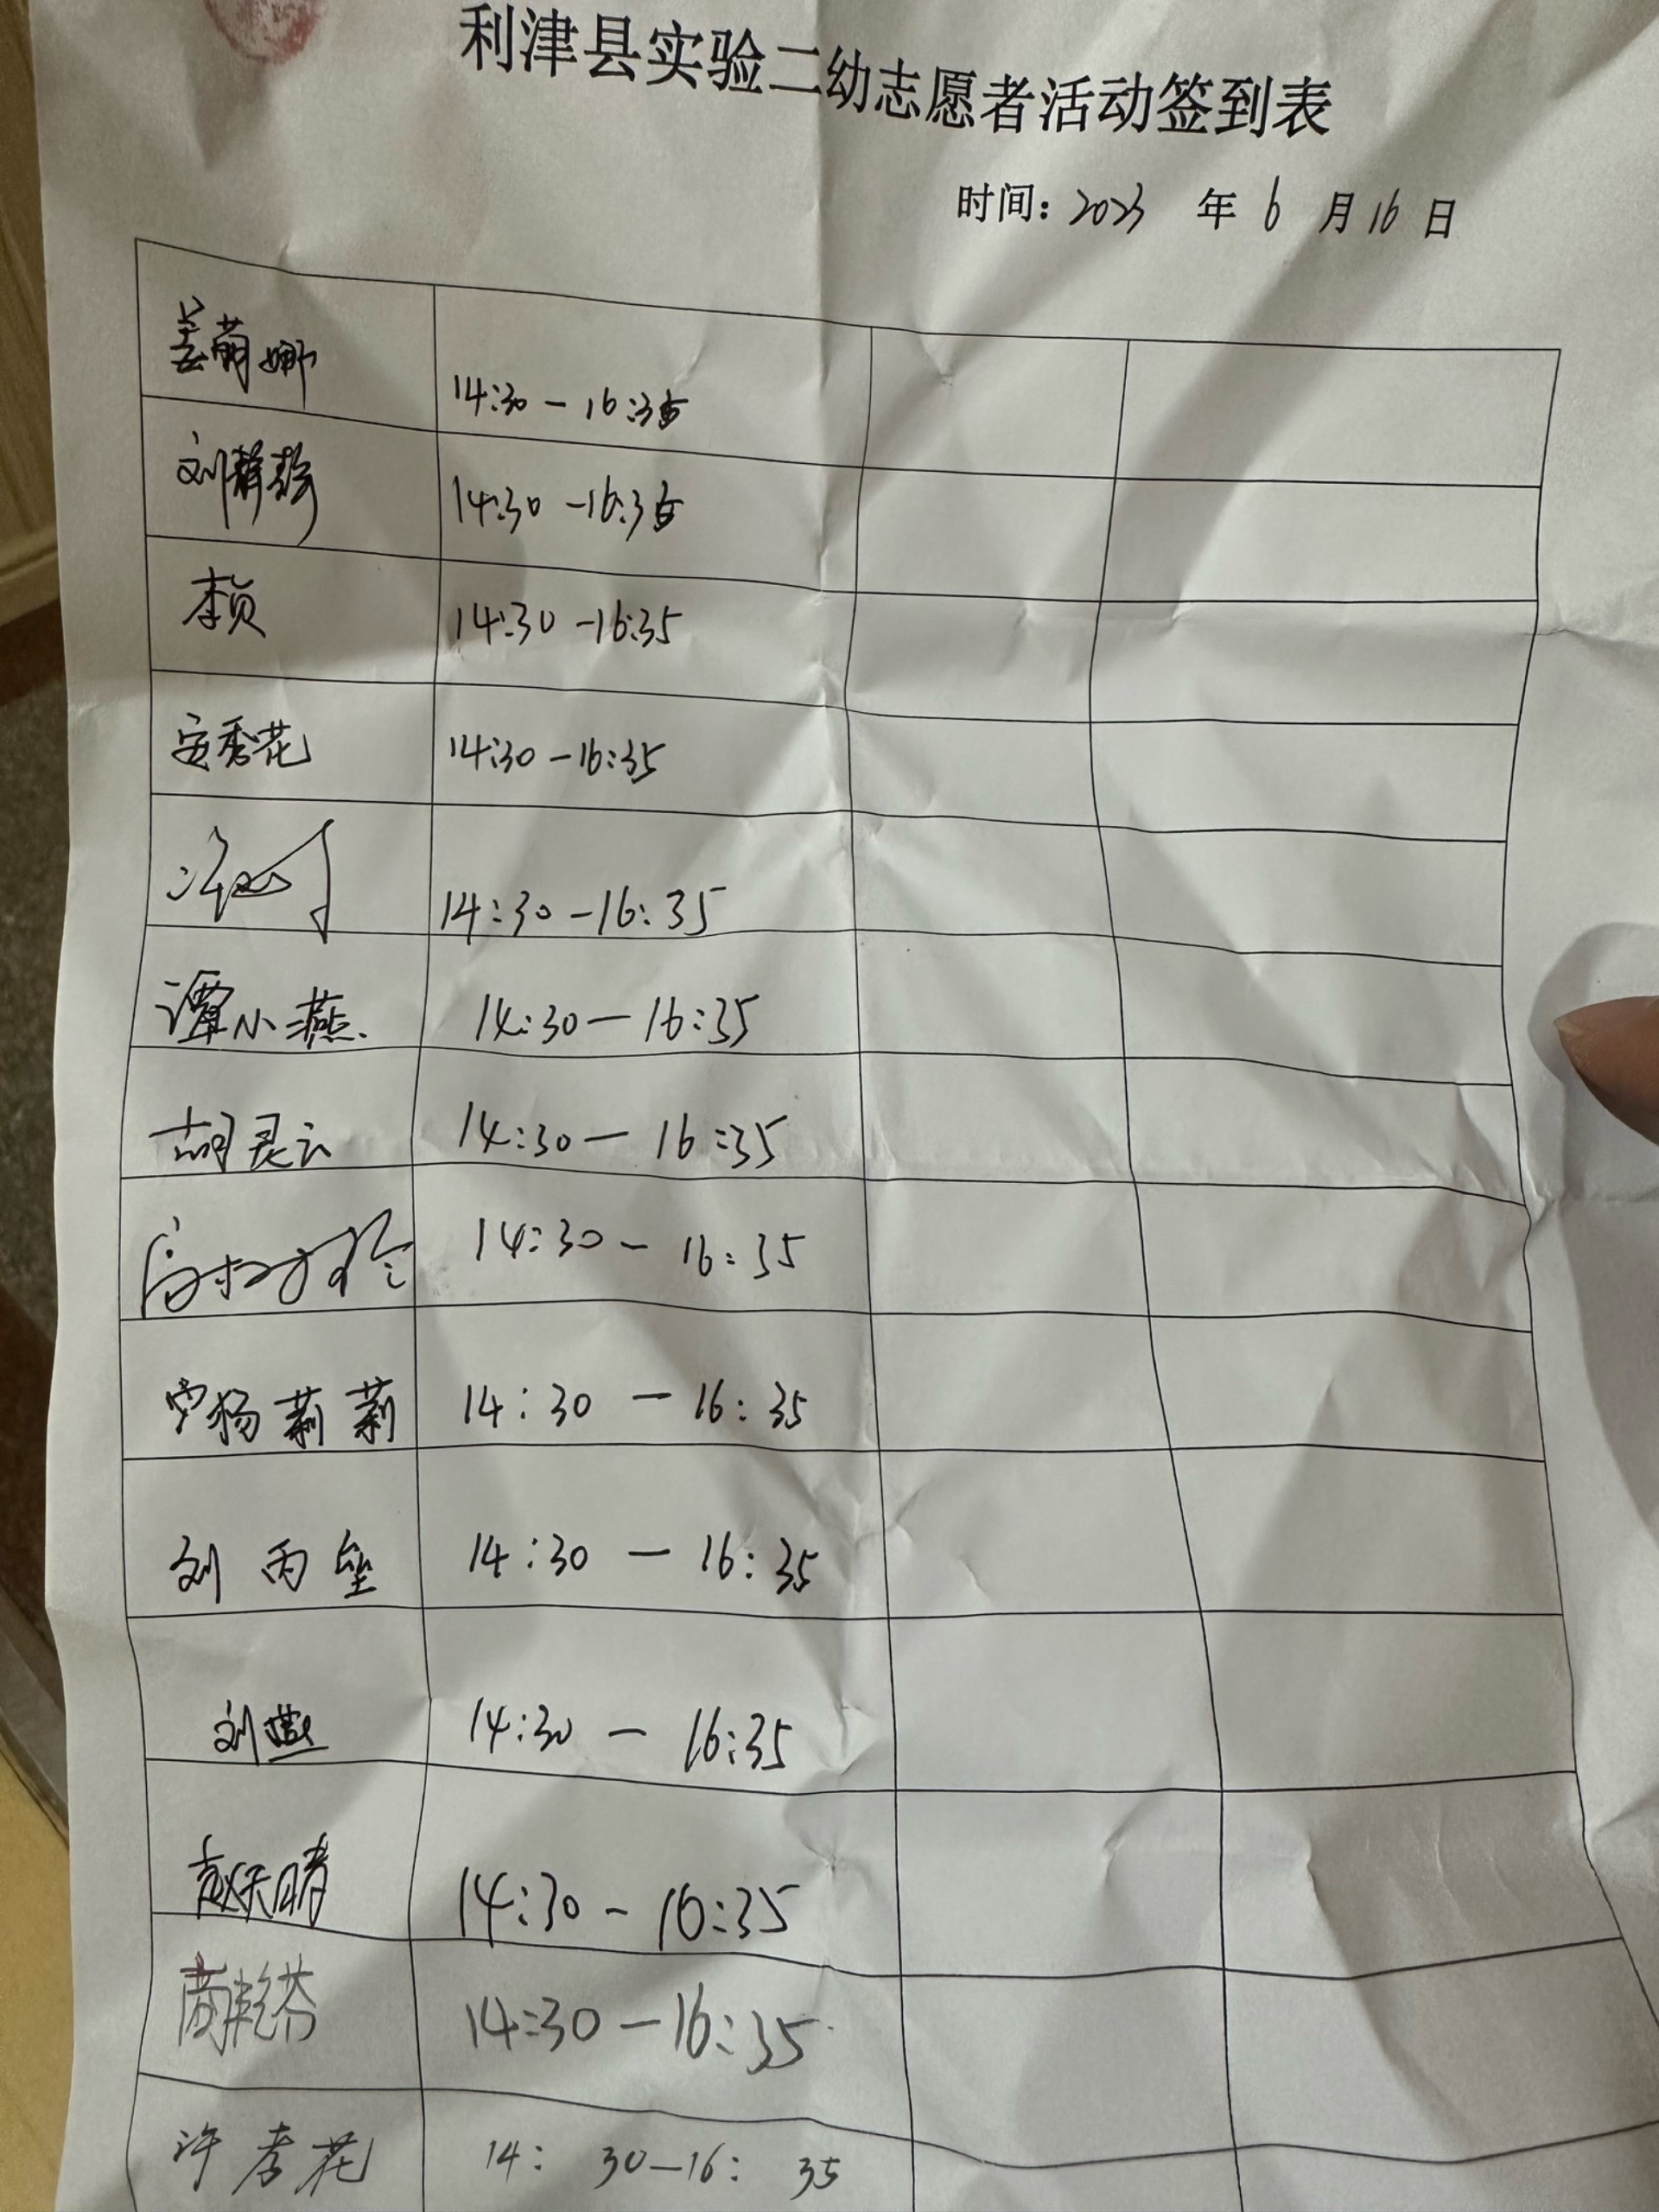 利津县实验二幼志愿者活动签到表
时间：2023 年 6 月 16 日
姜萌娜 14:30 - 16:35
刘静静 14:30 - 16:35
李贞 14:30 - 16:35
安秀花 14:30 - 16:35
14:30 - 16:35
谭小燕 14:30 - 16:35
胡灵云 14:30 - 16:35
14:30 - 16:35
杨莉莉 14:30 - 16:35
刘丙垒 14:30 - 16:35
刘燕 14:30 - 16:35
赵天晴 14:30 - 16:35
商乾芬 14:30 - 16:35
许孝花 14:30 - 16:35